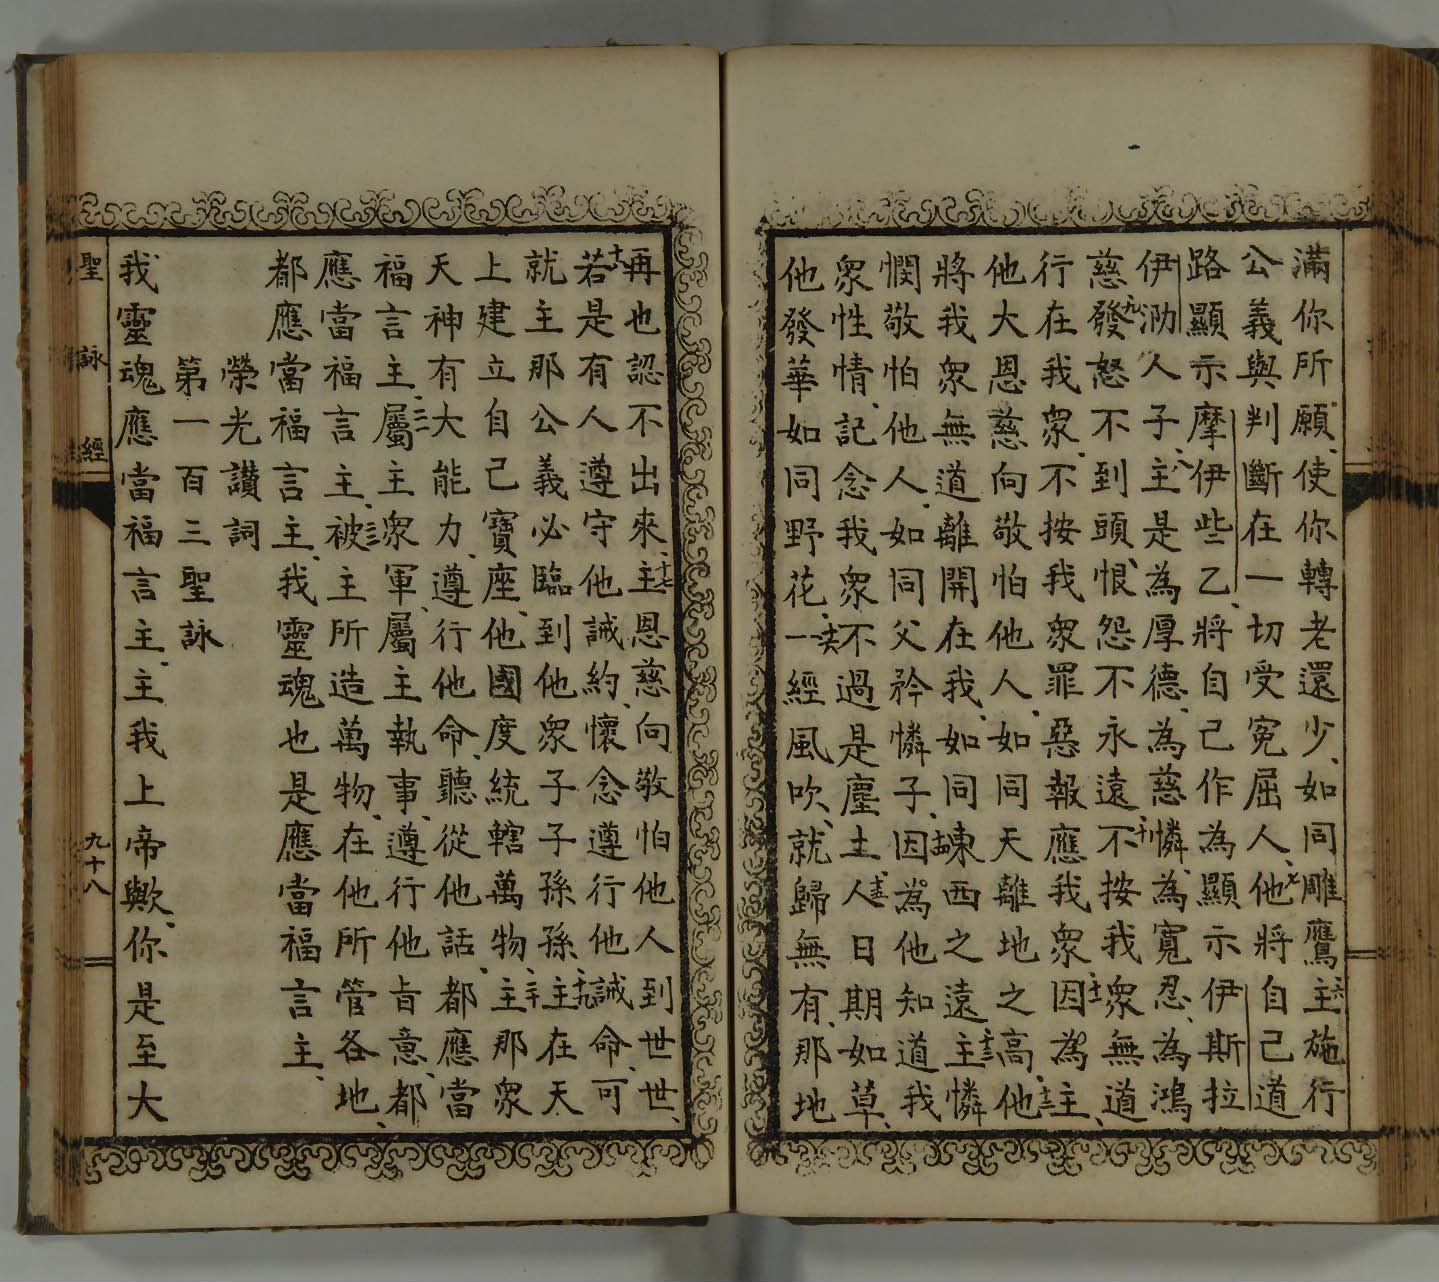 滿你所願、使你轉老還少、如同雕鷹、六主施行
公義與判斷在一切受冤屈人、七他將自己道
路顯示摩伊些乙、將自己作為顯示伊斯拉
伊泐人子、八主是為厚德、為慈憐、為寬忍、為鴻
慈、九發怒不到頭、恨怨不永遠、十不按我衆無道
行在我衆、不按我衆罪惡報應我衆、十一因為主、
他大恩慈向敬怕他人、如同天離地之高、十二他
將我衆無道離開在我、如同東西之遠、十三主憐
憫敬怕他人、如同父矜憐子、十四因為他知道我
衆性情、記念我衆不過是塵土、十五人日期如草、
他發華如同野花、十六一經風吹、就歸無有、那地
再也認不出來、十七主恩慈向敬怕他人到世世、
十八若是有人遵守他誡約、懷念遵行他誡命、可
就主那公義必臨到他衆子子孫孫、十九主在天
上建立自己寶座、他國度統轄萬物、二十主那衆
天神有大能力、遵行他命、聽從他話、都應當
福言主、二一屬主衆軍、屬主執事、遵行他旨意、都
應當福言主、二二被主所造萬物、在他所管各地、
都應當福言主、我靈魂也是應當福言主、
榮光讚詞
第一百三聖詠
我靈魂應當福言主、主我上帝歟、你是至大
聖詠經
九十八